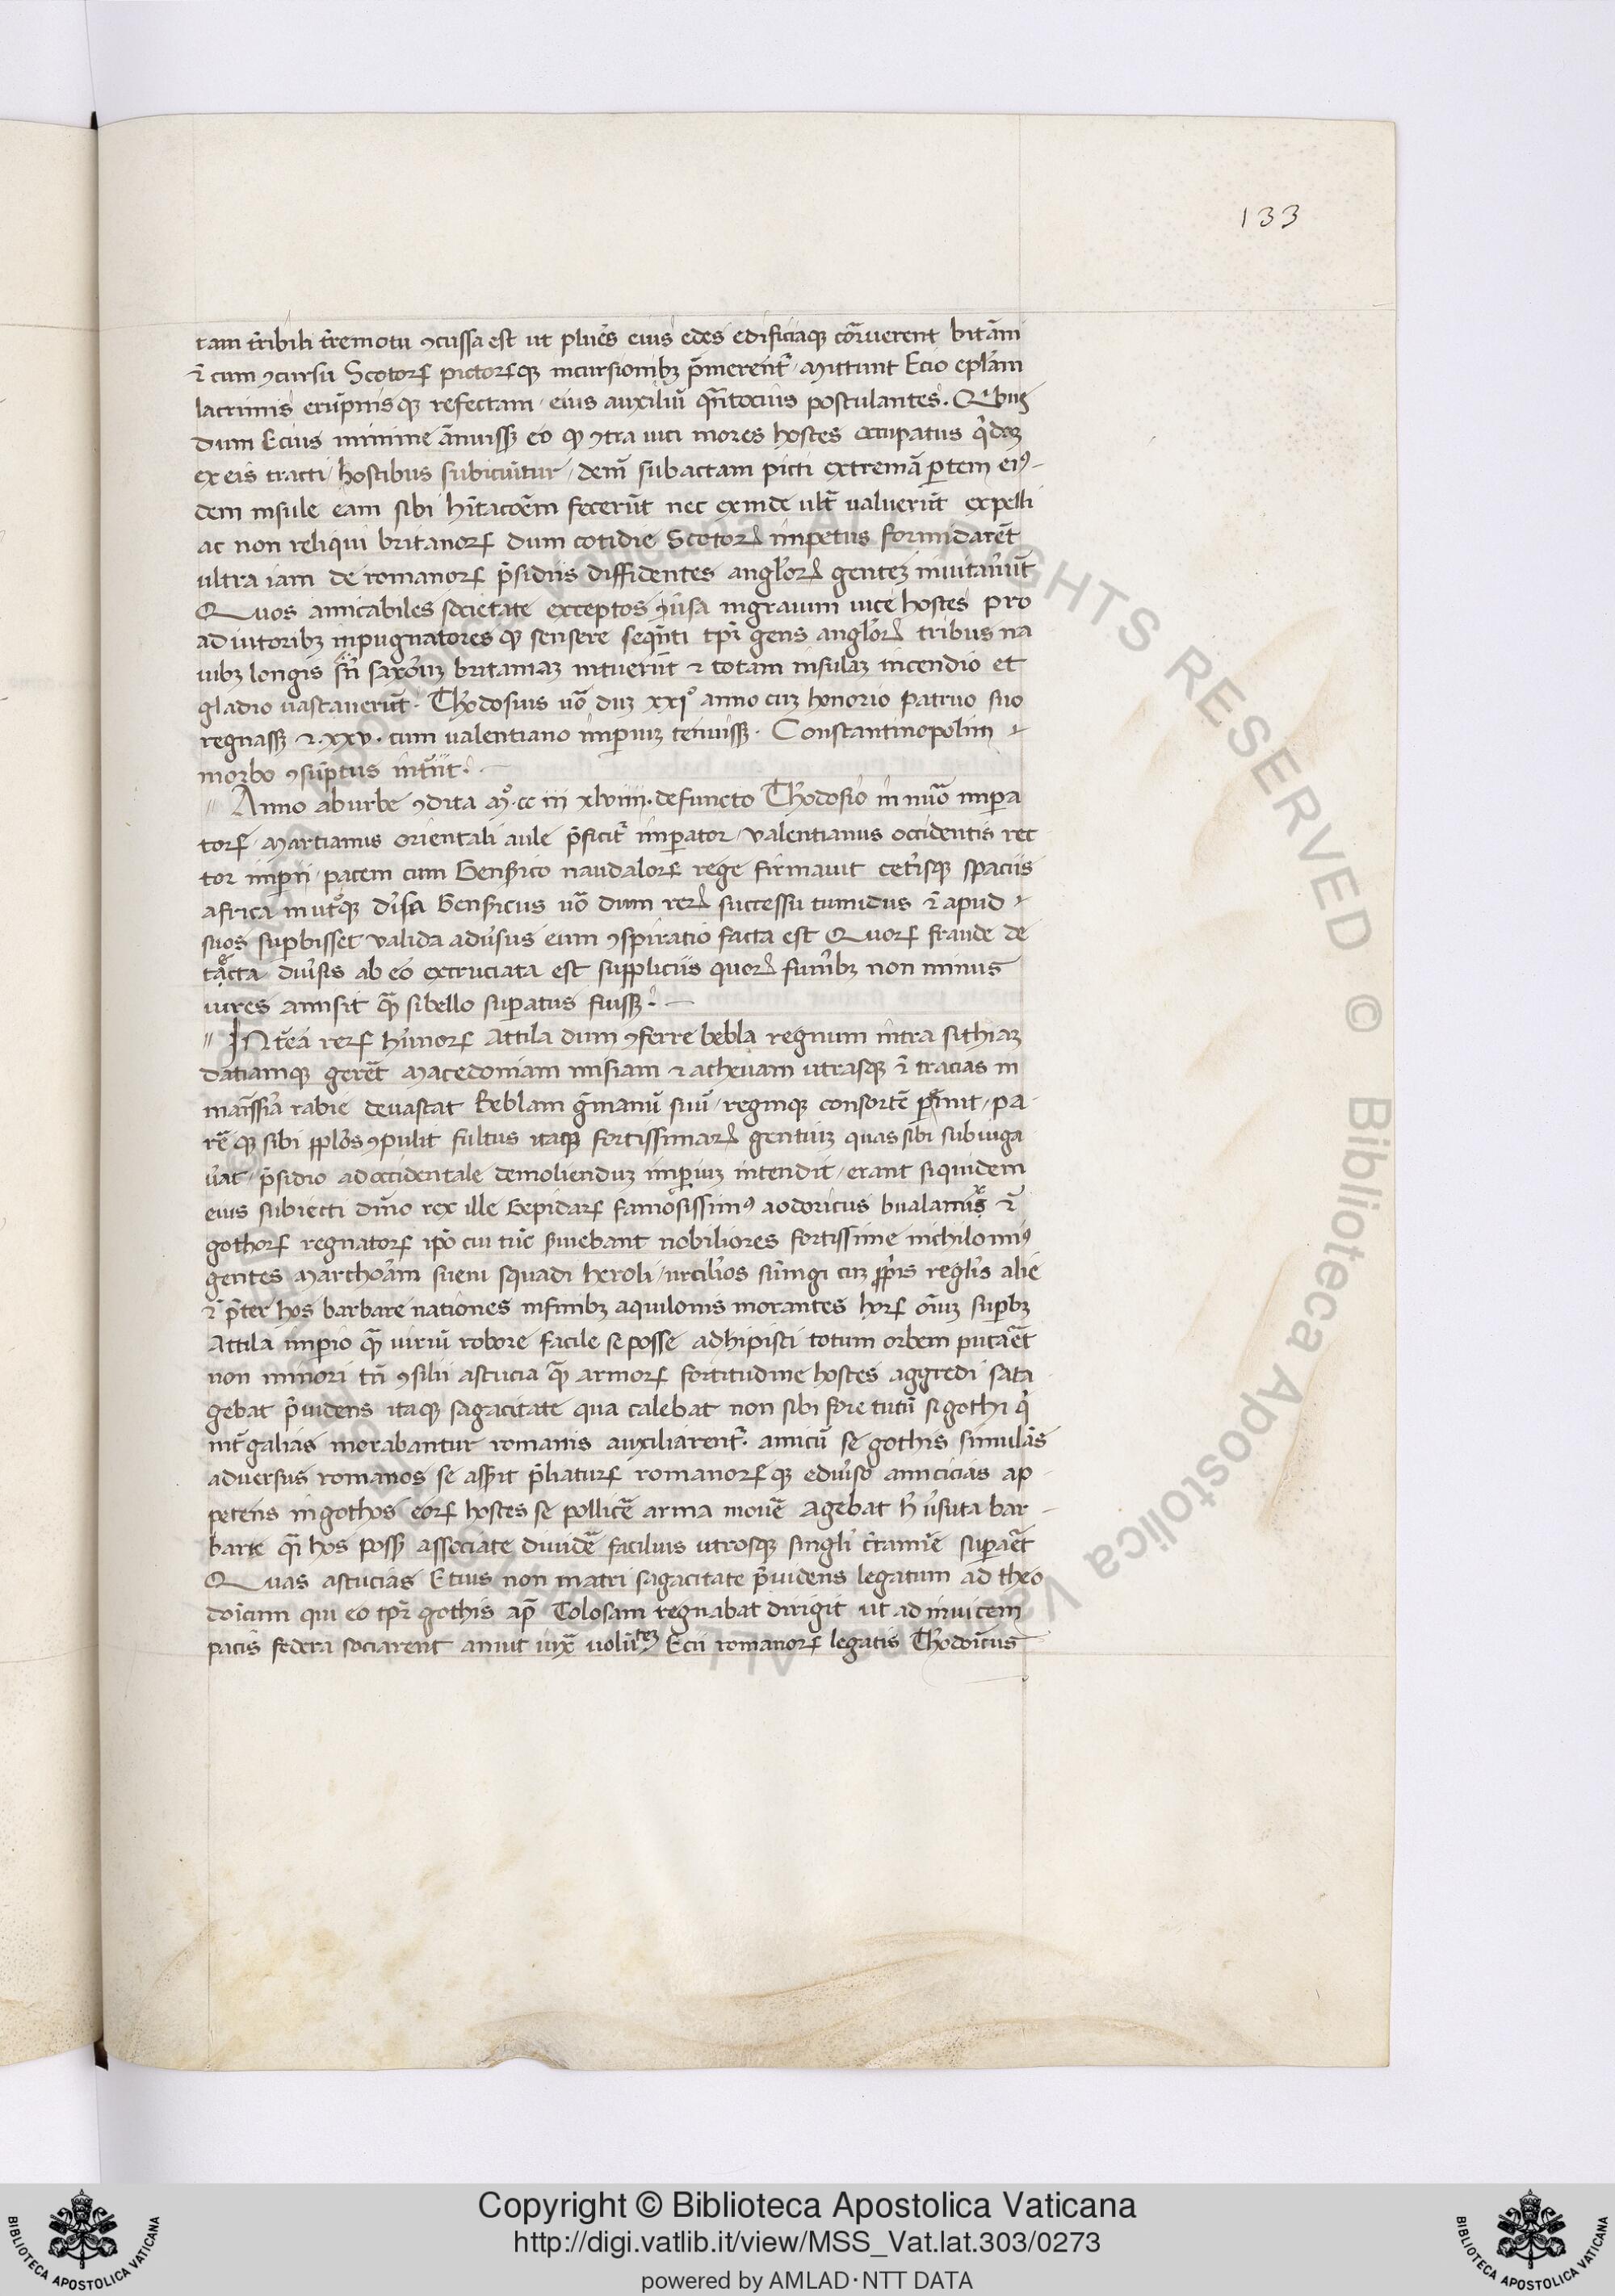 133
tam t̃ribili t̃remotu ꝯcussa est ut plures eius edes edificiaqꝫ cor̃uerent bitãni
⁊̃ cum ꝯcursu Scotorꝭ pictorꝭqꝫ incursionibꝫ p̃merent᷑ mittunt Ecio epl̃am
lacrimis erup̃nisqꝫ refectam eius auxiliũ qñtocius postulantes. Qbus
dum Ecius minime ãnuissꝫ eo ꝙ ꝯtra uici mores hostes occupatus
ex eis tracti hostibus subiciũtur dem̃ subactam picti extremã ꝑtem eiꝰ
dem insule eam sibi hĩtacõem fecerũt nec exinde ult̃ ualuerũt expelli
ac non reliqui britanorꝭ dum cotidie Scotorꝭ impetus formidarẽt
ultra iam de romanorꝭ p̃sidiis diffidentes anglorꝭ genteꝫ inuitarũt
Quos amicabiles societate exceptos ꝯũsa ingrauim uice hostes pro
ad iutoribꝫ inpugnatores ꝙ sensere seqñti tpr̃ gens anglorꝭ tribus na
uibꝫ longis saxoũꝫ britaniaꝫ intuerũt ⁊ totam insulaꝫ incendio et
gladio uastauerũt. Th̃odosius uõ duꝫ xxiº anno cuꝫ honorio patruo suo
regnassꝫ ⁊ .xxv. cum ualentiano imperiuꝫ tenuissꝫ. Constantinopolim
morbo ꝯsũptus int̃iit.
Anno ab urbe ꝯdita mº. cc iii xlviiii. defuncto Th̃odosio in nũo impera
torꝭ Martianus orientali aule p̃ficit᷑ imperator Valentianus occidentis rec
tor imperii pacem cum Gens̃ico uandalorꝭ rege firmauit cet̃isqꝫ spaciis
africa in utºqꝫ diũsa Gens̃icus uõ dum rerꝭ successu tumidus ⁊̃ apud
suos superbisset ualida aduersus eum ꝯspiratio facta est Quorꝭ fraude de
tecta diũsis ab eo extruciata est suppliciis quorꝭ funeribꝫ non minus
uires amisit qã si bello superatus fuissꝫ.
Int̃ea rerꝭ hũmorꝭ Attila dum ꝯferre bebla regnum intra sithiaꝫ
datiamqꝫ gerẽt Macedoniam misiam ⁊ acheuam utrasqꝫ ⁊̃ tracias in
rabie deuastat Beblam g̃manũ suũ reginqꝫ consortẽ ꝑimit pa
rẽqꝫ sibi pplõs ꝯpulit fultus itaqꝫ fortissimarꝭ gentiuꝫ quas sibi subiuga
uerat p̃sidio ad occidentale demoliendum imperiuꝫ intendit erant siquidem
eius subiecti dñio rex ille Gepidarꝭ famosissimꝰ aodoricus bualamis ⁊̃
gothorꝭ regnatorꝭ ipõ cui tũc s̃uiebant nobiliores fortissime nichilo miꝰ
gentes Marchom̃ sueui squadi heroli urcilios cuꝫ pp̃is reglis alie
⁊ p̃ter hos barbare nationes in finibꝫ aquilonis morantes horꝭ oĩuꝫ superbꝫ
Attila imperio qã uiriũ robore facile se posse adhipisci totum orbem putarẽt
non minori tñ ꝯsilii astucia qã armorꝭ fortitudine hostes aggredi sata
gebat p̃uidens itaqꝫ sagacitate qua calebat non sibi fore tutũ si gothi q̃
int̃ galias morabantur romanis auxiliarent᷑. amicũ se gothis simulãs
aduersus romanos se asserit p̃liaturꝭ romanorꝭqꝫ ediũso amicicias ap
petens in gothos eorꝭ hostes se pollicẽ arma mouẽ agebat h̃ uersuta bar
barie qã hos possꝫ associate diuidẽ facilius utrosqꝫ singli c̃tamĩe superarẽt
Quas astucias Etius non matri sagacitate p̃uidens legatum ad theo
doricum qui eo tpr̃ gothis ap̃ Tolosam regnabat dirigit ut ad inuicem
pacis federa sociarent anuit iuxã uolũtem Ecii romanorꝭ legatis Th̃odoricus
Copyright © Biblioteca Apostolica Vaticana
http://digi.vatlib.it/view/MSS_Vat.lat.303/0273
powered by AMLAD·NTT DATA
BIBLIOTECA APOSTOLICA VATICANA
BIBLIOTECA APOSTOLICA VATICANA